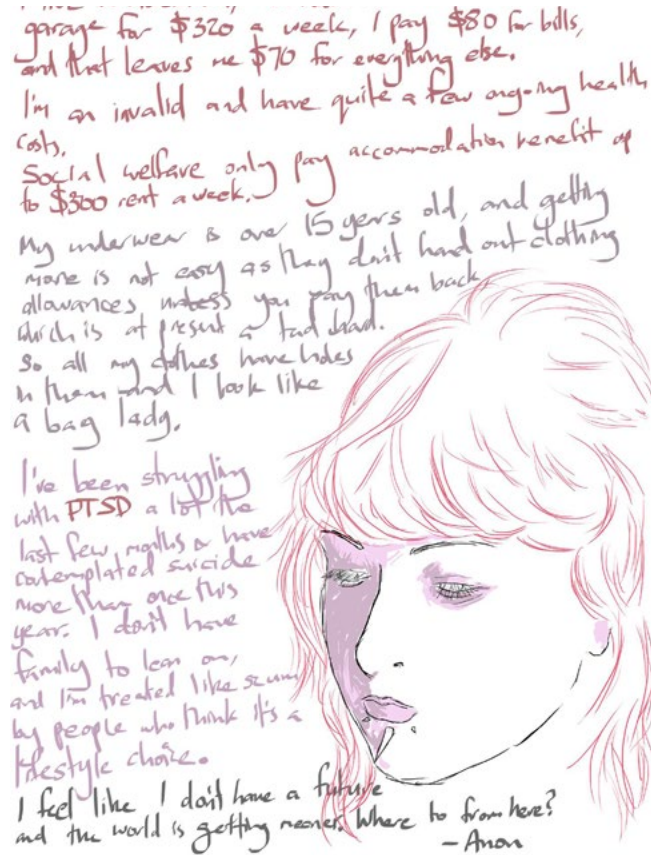 garage for $320 a week, I pay $80 for bills,
and that leaves me $70 for everything else.
I'm an invalid and have quite a few ongoing health
costs.
Social welfare only pay accommodation benefit up
to $300 rent a week.
My underwear is over 15 years old, and getting
more is not easy as they don't hand out clothing
allowances unless you pay them back
which is at present a tad hard.
So all my clothes have holes
in them and I look like
a bag lady.
I've been struggling
with PTSD a lot the
last few months & have
contemplated suicide
more than once this
year. I don't have
family to lean on,
and I'm treated like scum
by people who think it's a
lifestyle choice.
I feel like I don't have a future
and the world is getting meaner. Where to from here?
- Anon